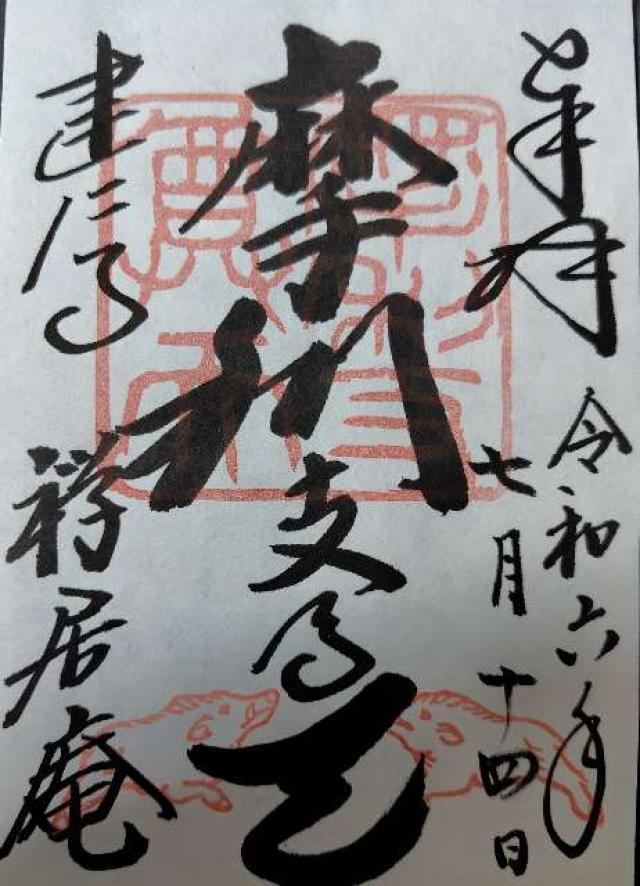 奉拝
令和六年
七月十四日
摩利支尊天
建仁寺
禅居庵